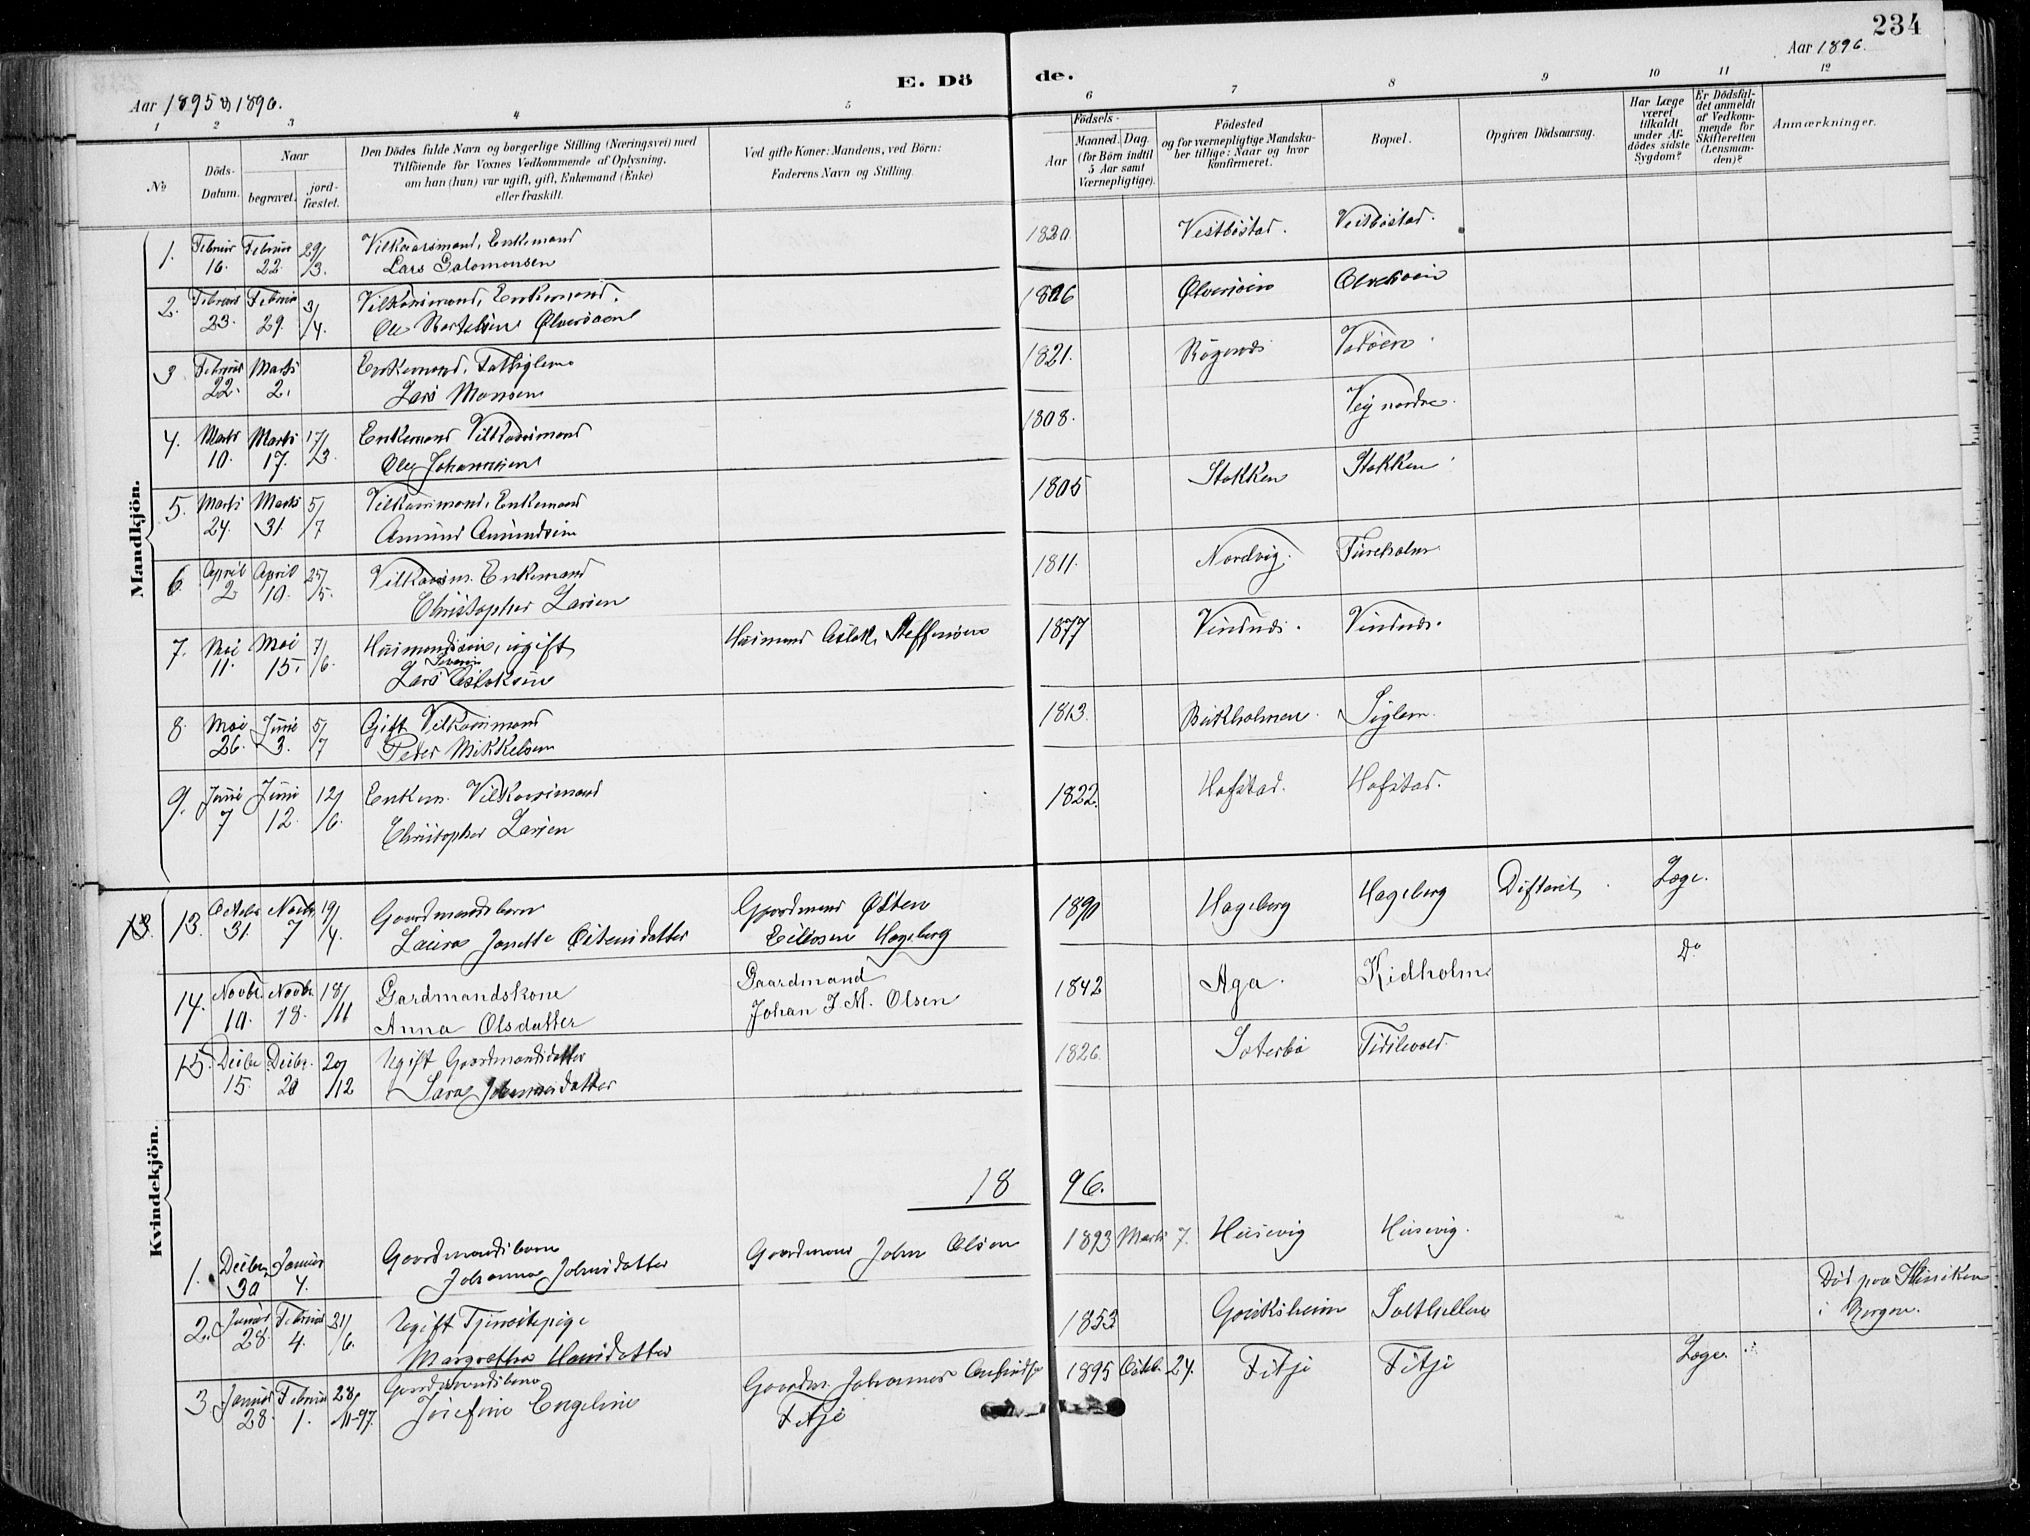 234
Aar 1895 & 1896.
E. Dö
de.
Aar 1896.
1 2 3 4 5 6 7 8 9 10 11 12
№
Döds-
Datum.
Naar
begravet.
jord-
fæstet.
Den Dödes fulde Navn og borgerlige Stilling (Næringsvei) med
Tilföiende for Voxnes Vedkommende af Oplysning,
om han (hun) var ugift, gift, Enkemand (Enke)
eller fraskilt.
Ved gifte Koner: Mandens, ved Börn:
Faderens Navn og Stilling.
Födsels-
Aar
Maaned. Dag.
(for Börn indtil
5 Aar samt
Værnepligtige).
Födested
og for værnepligtige Mandska-
ber tillige: Naar og hvor
konfirmeret.
Bopæl.
Opgiven Dödsaarsag.
Har Læge
været
tilkaldt
under Af-
dödes sidste
Sygdom?
Er Dödsfal-
det anmeldt
af Vedkom-
mende for
Skifteretten
(Lensman-
den)?
Anmærkninger.
Mandkjön.
1. Februar 16. Februar 22. 29/3. Vilkaarsmand, Enkemand
Lars Salomonsen
1820. Vestböstad. Vestböstad.
2. Februar 23. Februar 29. 3/4. Vilkaarsmand, Enkemand.
Ole Bartelsen Ølversøen
1806 Ølversøen Ølversøen
3 Februar 22. Marts 2. Enkemand, Fattiglem
Lars Monsen
1821. Rögsnes
4. Marts 10. Marts 17. 17/3. Enkemand Vilkaarsmand
Ole Johannesen
1808. Veg nordre.
5. Marts 24. Marts 31. 5/7 Vilkaarsmand, Enkemand
Amund Amundsen
1805 Stokken Stokken
6. April 2 April 10. 25/5. Vilkaarsm. Enkemand
Christopher Larsen
1811. Nordvig. Tureholm.
7. Mai 11. Mai 15. 7/6. Husmandssön, ugift
Lars Severin Aslaksen
Husmand Aslak Steffensen
1877 Vindnes. Vindnes.
8. Mai 26. Juni 3. 5/7 Gift Vilkaarsmand
Peder Mikkelsen
1813. Birkholmen. Siglen.
9. Juni 7 Juni 12. 12/6. Enkem. Vilkaarsmand
Christopher Larsen
1822. Hofstad. Hofstad.
Kvindekjön.
13. 13. Octobr 31. Novbr. 7 19/4. Gaardmandsbarn
Laura Janette Östensdatter
Gaardmand Östen
Eilevsen Hageberg
1890 Hageberg Hageberg Difterit Læge.
14. Novbr. 10. Novbr. 18. 18/11 Gardmandskone
Anna Olsdatter
Gaardmand
Johan J. M. Olsen
1842 Aga. Kidholm. Do
15. Decbr. 15. Decbr. 20 20/12 Ugift Gaardmandsdatter
Sara Johannesdatter
1826. Sæterbö
18 96.
1. Decbr. 30 Januar 4. Gaardmandsbarn
Johanna Johnsdatter
Gaardmand John Olsen
1893 Marts 7. Husevig Husevig.
2. Januar 28. Februar 4. 21/6. Ugift Tjenestepige
Margretha Hansdatter
1853 Gouksheim Solthellen
Död paa Kliniken
i Bergen.
3 Januar 28. Februar 1. 28/11-97. Gaardmandsbarn
Josefine Engeline
Gaardm. Johannes
Fitje
1895 Octbr. 24. Fitje Fitje Læge.